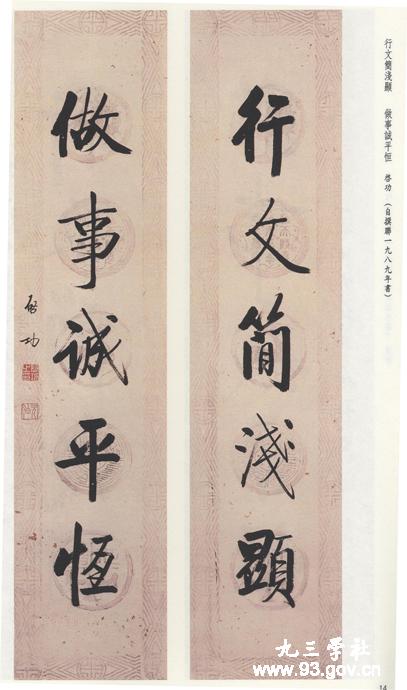 行文簡淺顯　做事誠平恒　啓功　（自撰聯一九八九年書）
行文簡淺顯
做事诚平恆
启功
14
九三学社
www.93.gov.cn